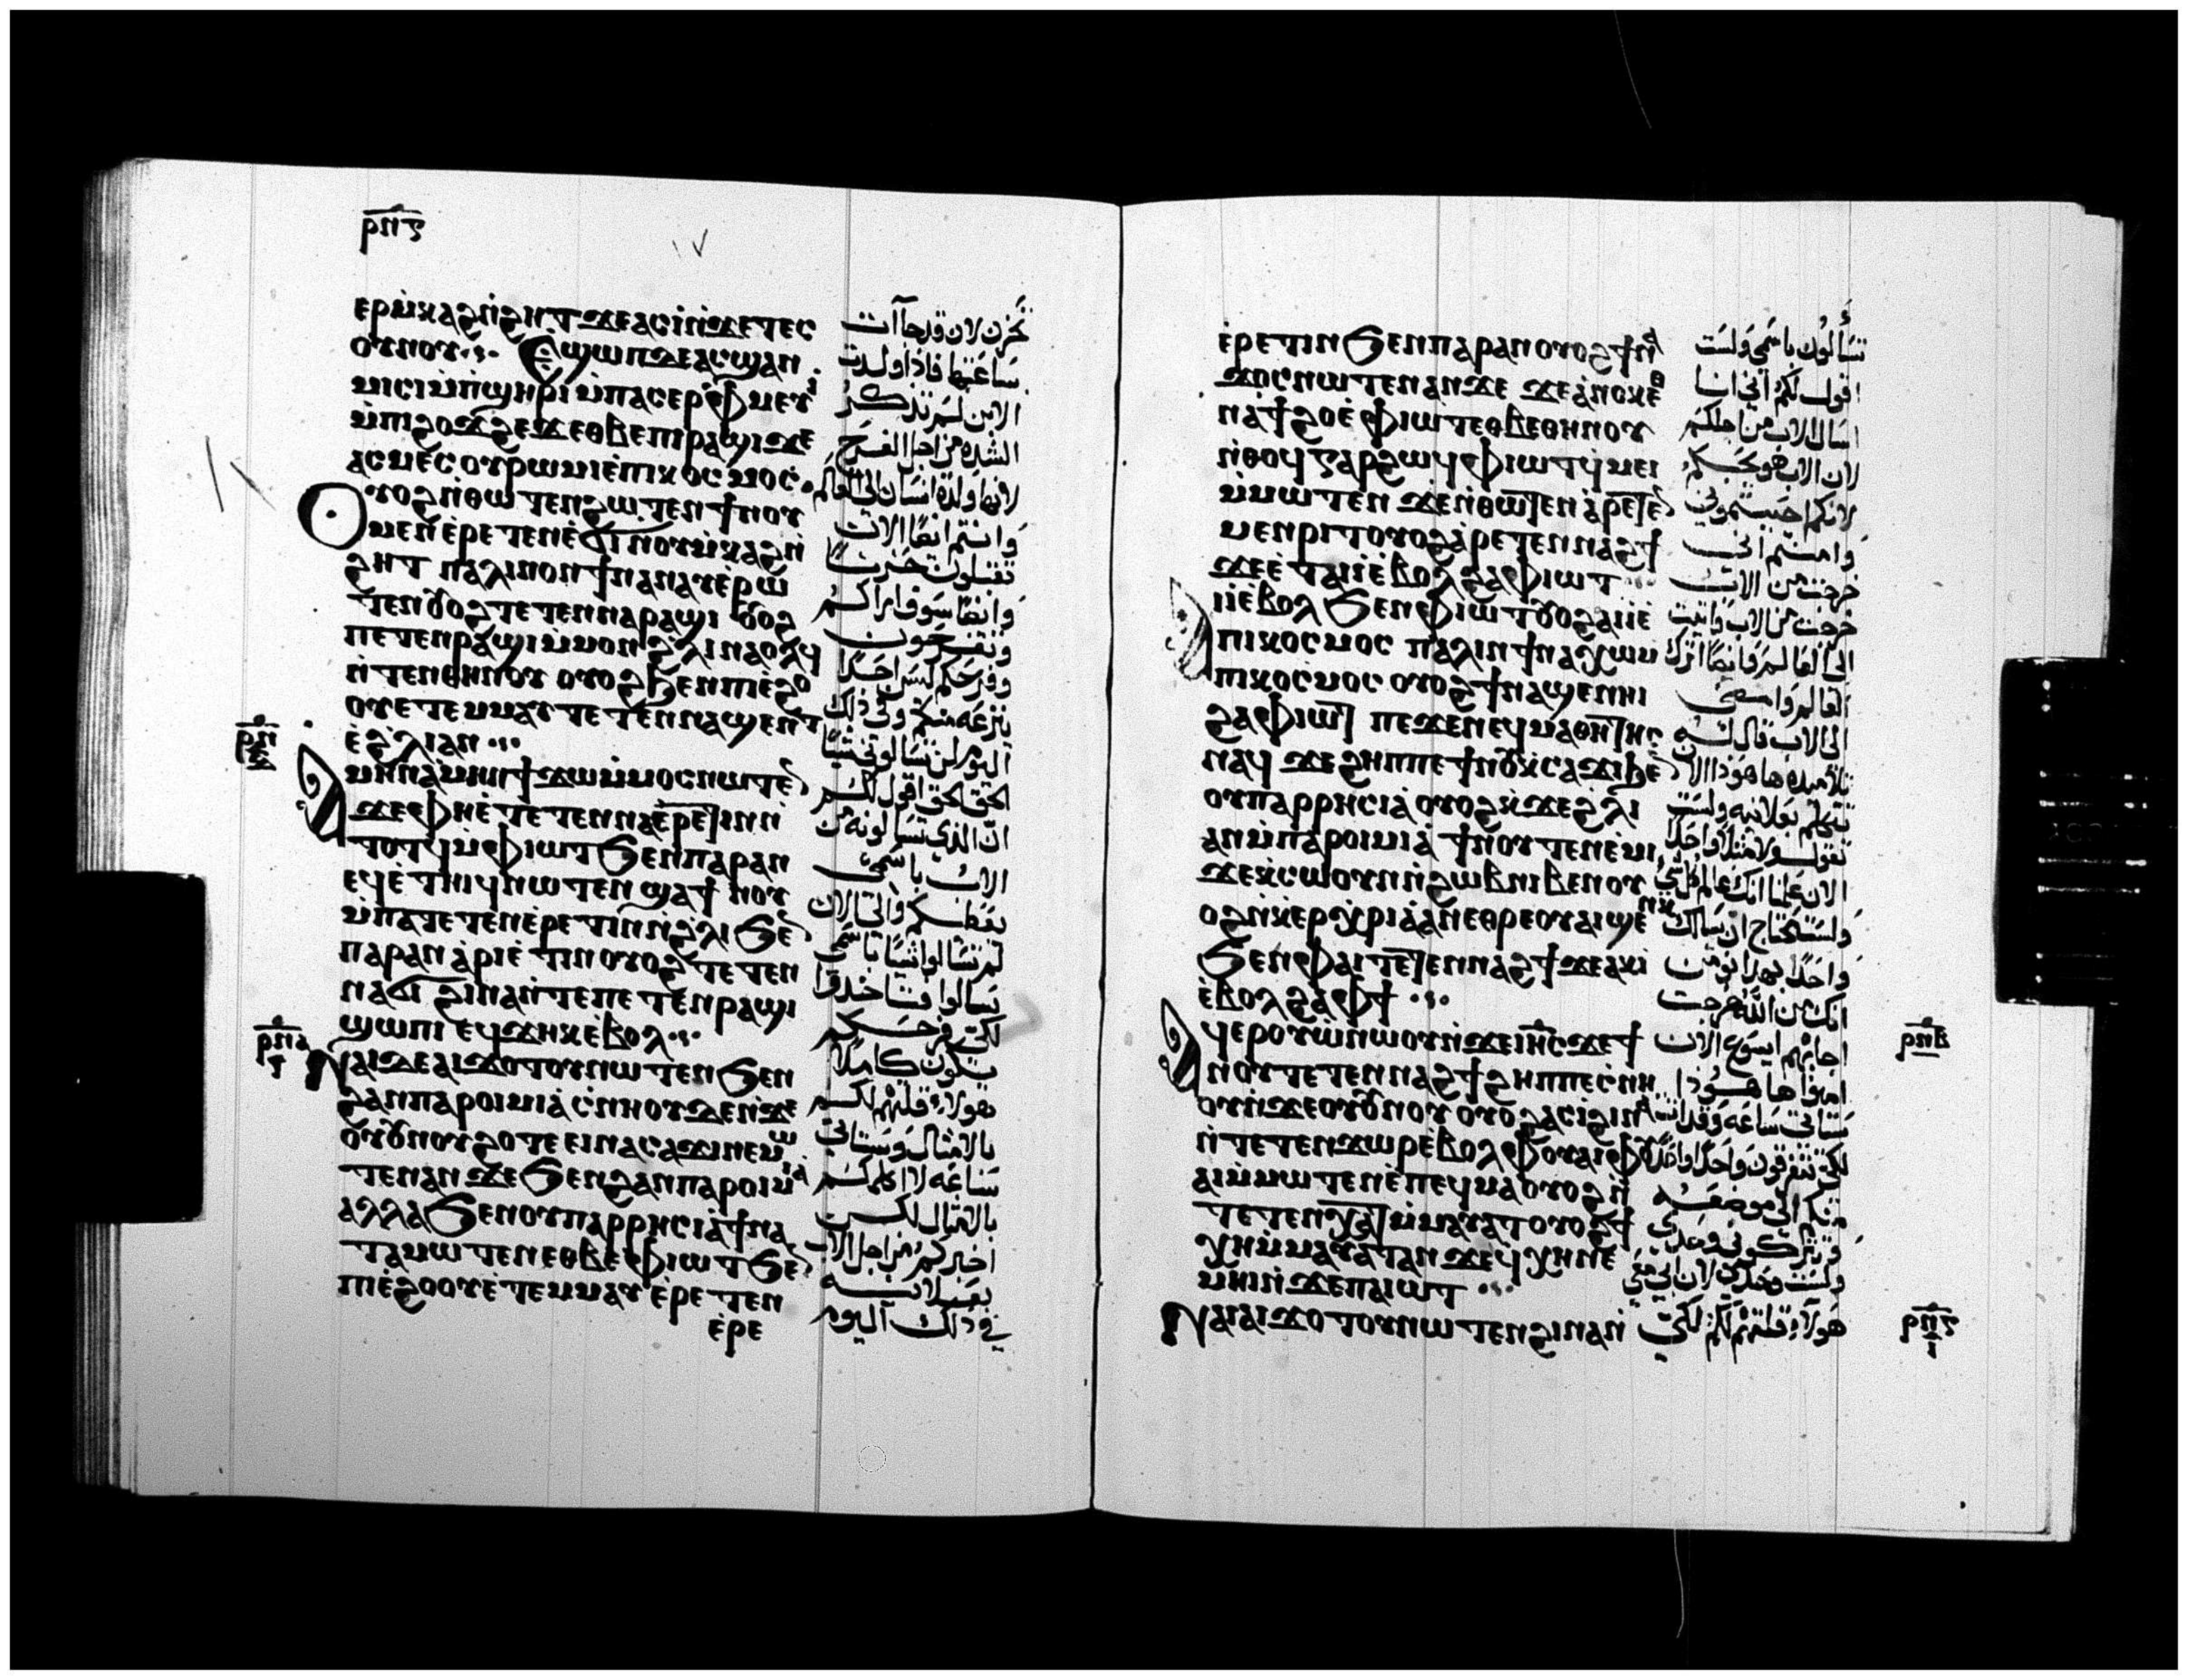 ⲣⲡⲋ
١٧
ⲉⲣⲙ̀ⲕⲁϩⲛ̀ϩⲏⲧ ϫⲉⲁⲥⲓ̀ⲛ̀ϫⲉⲧⲉⲥ
ⲟⲩⲛⲟⲩ ⲉ̀ϣⲱⲡ ⲇⲉⲁⲥϣⲁⲛ
ⲙⲓⲥⲓ ⲙ̀ⲡ̀ϣⲏⲣⲓ ⲙ̀ⲡⲁⲥⲉⲣⲫ̀ⲙⲉⲩⲓ̀
ⲙ̀ⲡⲓϩⲟϫϩⲉϫ ⲉⲑⲃⲉⲡⲓⲣⲁϣⲓ ϫⲉ
ⲁⲥⲙⲉⲥ ⲟⲩⲣⲱⲙⲓ ⲉ̀ⲡⲓⲕⲟⲥⲙⲟⲥ
ⲟⲩⲟϩ ⲛ̀ⲑⲱⲧⲉⲛ ϩⲱⲧⲉⲛ ϯⲛⲟⲩ
ⲙⲉⲛ ⲉ̀ⲣⲉⲧⲉⲛⲉ̀ϭⲓ ⲛⲟⲩⲙ̀ⲕⲁϩⲛ̀
ϩⲏⲧ ⲡⲁⲗⲓⲛ ⲟⲛ ϯⲛⲁⲛⲁⲩ ⲉ̀ⲣⲱ
ⲧⲉⲛ ⲟⲩⲟϩ ⲧⲉⲧⲉⲛⲛⲁⲣⲁϣⲓ ⲟⲩⲟϩ
ⲡⲉⲧⲉⲛⲣⲁϣⲓ ⲙ̀ⲙⲟⲛ ϩ̀ⲗⲓ ⲛⲁⲟⲗϥ
ⲛ̀ⲧⲉⲛⲑⲏⲛⲟⲩ ⲟⲩⲟϩ ϧⲉⲛⲡⲓⲉ̀ϩⲟ
ⲟⲩ ⲉⲧⲉⲙⲙⲁⲩ ⲧⲉⲧⲉⲛⲛⲁϣⲉⲛⲧ
ⲉ̀ϩ̀ⲗⲓ ⲁⲛ
ⲣⲡ
ⲁⲙⲏⲛ ⲁ̀ⲙⲏⲛ ϯϫⲱ ⲙ̀ⲙⲟⲥ ⲛⲱⲧⲉ
ϫⲉⲫⲏ ⲉ̀ⲧⲉⲧⲉⲛⲛⲁⲉ̀ⲣⲉⲧⲓⲛ ⲛ̀
ⲧⲟⲧϥ ⲙ̀ⲫⲓⲱⲧ ϧⲉⲛⲡⲁⲣⲁⲛ
ⲉϥⲉ̀ⲧⲏⲓϥ ⲛⲱⲧⲉⲛ ϣⲁϯⲛⲟⲩ
ⲙ̀ⲡⲁⲧⲉⲧⲉⲛⲉ̀ⲣⲉⲧⲓⲛ ⲛ̀ϩ̀ⲗⲓ ϧⲉ
ⲡⲁⲣⲁⲛ ⲁ̀ⲣⲓⲉ̀ⲧⲓⲛ ⲟⲩⲟϩ ⲧⲉⲧⲉⲛ
ⲛⲁϭⲓ ϩⲓⲛⲁ ⲛ̀ⲧⲉⲡⲉⲧⲉⲛⲣⲁϣⲓ
ϣⲱⲡⲓ ⲉϥϫⲏⲕ ⲉ̀ⲃⲟⲗ
ⲣⲡⲁ
ⲛⲁⲓ ⲇⲉ ⲁⲓϫⲟⲧⲟⲩ ⲛⲱⲧⲉⲛ ϧⲉⲛ
ϩⲁⲛⲡⲁⲣⲟⲓⲙⲓⲁ̀ ⲥ̀ⲛⲏⲟⲩ ⲇⲉ ⲛ̀ϫⲉ
ⲟⲩⲟⲩⲛⲟⲩ ϩⲟⲧⲉ ⲉⲓⲛⲁⲥⲁϫⲓ ⲛⲉⲙⲱ
ⲧⲉⲛ ⲁⲛ ϫⲉ ϧⲉⲛϩⲁⲛⲡⲁⲣⲟⲓⲙⲓⲁ̀
ⲁⲗⲗⲁ ϧⲉⲛⲟⲩⲡⲁⲣⲣⲏⲥⲓⲁ̀ ϯⲛⲁ
ⲧⲁⲙⲱⲧⲉⲛ ⲉⲑⲃⲉⲫⲓⲱⲧ ϧⲉ
ⲡⲓⲉ̀ϩⲟⲟⲩ ⲉ̀ⲧⲉⲙⲙⲁⲩ ⲉ̀ⲣⲉⲧⲉⲛ
ⲉ̀ⲣⲉ
تحزن لان قد جاآت
ساعتها فاذا ولدت
الابن لم تذكر
الشده من اجل الفرح
لانها ولدت انسان الى العالم
وانتم ايضًا الان
تقبلون حزنًا
وايضًا سوف اراكم
وتفرحون
وفرحكم ليس احدًا
ينزعه منكم وفي ذلك
اليوم لن تسالوني شيًا
الحق الحق اقول لكم
ان الذي تسالونه من
الاب باسمي
يعطيكم والى الان
لم تسالوا شيًا باسمي
سالوا فتاخدوا
لكي فرحكم
يكون كاملًا
هولاء قلتهم لكم
بالامثال وستاتي
ساعه لا اكلمكم
بالامثال لكن
اخبركم من اجل الاب
بعلانيه
في ذلك اليوم
ⲉ̀ⲣⲉⲧⲓⲛ ϧⲉⲛⲡⲁⲣⲁⲛ ⲟⲩⲟϩ ϯⲛⲁ
ϫⲟⲥ ⲛⲱⲧⲉⲛ ⲁⲛ ϫⲉ ϫⲉⲁ̀ⲛⲟⲕ ⲉ̀ⲑ
ⲛⲁϯϩⲟ ⲉ̀ⲫⲓⲱⲧ ⲉⲑⲃⲉⲑⲏⲛⲟⲩ
ⲛ̀ⲑⲟϥ ⲅⲁⲣ ϩⲱϥ ⲫⲓⲱⲧ ϥ̀ⲙⲉⲓ
ⲙ̀ⲙⲱⲧⲉⲛ ϫⲉ ⲛ̀ⲑⲱⲧⲉⲛ ⲁ̀ⲣⲉⲧⲉ
ⲙⲉⲛⲣⲓⲧ ⲟⲩⲟϩ ⲁ̀ⲣⲉⲧⲉⲛⲛⲁϩϯ
ϫⲉ ⲉ̀ⲧⲁⲓⲓ̀ ⲉ̀ⲃⲟⲗ ϩⲁⲫⲓⲱⲧ
ⲓⲓ̀ ⲉ̀ⲃⲟⲗ ϧⲉⲛⲫⲓⲱⲧ ⲟⲩⲟϩ ⲁⲓⲓ̀ ⲉ̀
ⲡⲓⲕⲟⲥⲙⲟⲥ ⲡⲁⲗⲓⲛ ϯⲛⲁⲭⲱ ⲙ
ⲡⲓⲕⲟⲥⲙⲟⲥ ⲟⲩⲟϩ ϯⲛⲁϣⲉⲛⲏⲓ
ϩⲁⲫⲓⲱⲧ ⲡⲉϫⲉⲛⲉϥⲙⲁⲑⲏⲧⲏⲥ
ⲛⲁϥ ϫⲉ ϩⲏⲡⲡⲉ ϯⲛⲟⲩ ⲕ̀ⲥⲁϫⲓ ϧⲉ
ⲟⲩⲡⲁⲣⲣⲏⲥⲓⲁ̀ ⲟⲩⲟϩ ⲕ̀ϫⲉϩ̀ⲗⲓ
ⲁⲛ ⲙ̀ⲡⲁⲣⲟⲓⲙⲓⲁ̀ ϯⲛⲟⲩ ⲧⲉⲛⲉ̀ⲙⲓ
ϫⲉ ⲕ̀ⲥⲱⲟⲩⲛ ⲛ̀ϩⲱⲃ ⲛⲓⲃⲉⲛ ⲟⲩ
ⲟϩ ⲛ̀ⲕ̀ⲉⲣⲭ̀ⲣⲓⲁ̀ ⲁⲛ ⲉⲑⲣⲉⲟⲩⲁⲓ ϣⲉⲛⲕ
ϧⲉⲛⲫⲁⲓ ⲧⲉⲧⲉⲛⲛⲁϩϯ ϫⲉ ⲁⲕⲓ
ⲉ̀ⲃⲟⲗ ϩⲁⲫϯ
ⲁϥⲉⲣⲟⲩⲱ ⲛⲱⲟⲩ ⲛ̀ϫⲉⲓⲏⲥ ϫⲉϯ
ⲛⲟⲩ ⲧⲉⲧⲉⲛⲛⲁϩϯ ϩⲏⲡⲡⲉ ⲥ̀ⲛⲏ
ⲟⲩ ⲛ̀ϫⲉⲟⲩⲟⲩⲛⲟⲩ ⲟⲩⲟϩ ⲁⲥⲓ̀ ϩⲓⲛⲁ
ⲛ̀ⲧⲉⲧⲉⲛϫⲱⲣ ⲉ̀ⲃⲟⲗ ⲫⲟⲩⲁⲓ ⲫⲟⲩ
ⲁⲓ ⲙ̀ⲙⲱⲧⲉⲛ ⲉ̀ⲡⲉϥⲙⲁ ⲟⲩⲟϩ ⲛ̀
ⲧⲉⲧⲉⲛⲭⲁⲧ ⲙ̀ⲙⲁⲩⲁⲧ ⲟⲩⲟϩ ϯ
ⲭⲏ ⲙ̀ⲙⲁⲩⲁⲧ ⲁⲛ ϫⲉ ϥ̀ⲭⲏ ⲛⲉ
ⲙⲏⲓ ⲛ̀ϫⲉⲡⲁⲓⲱⲧ
ⲛⲁⲓ ⲁⲓϫⲟⲧⲟⲩ ⲛⲱⲧⲉⲛ ϩⲓⲛⲁ ⲛ̀
تسألون باسمي ولست
اقول لكم اني انا
اسال الاب من اجلكم
لان الاب هو يحبكم
لانكم احببتموني
وامنتم اني
خرجت من الاب
خرجت من الاب واتيت
الى العالم وايضًا اترك
العالم وامضي
الى الاب قال له
تلاميده ها هوذا الان
تتكلم بعلانيه ولست
تقول ولا مثلا واحدًا
الان علمنا انك عالم كل شي
ولست تحتاج ان يسالك
واحدًا بهدا نومن
انك من الله خرجت
اجابهم ايسوع الان
امنوا ها هوذا
ستاتي ساعه وقد اتت
لكي تتفرقون واحدًا واحدًا
منكم الى موضعه
وتتركوني وحدي
ولست وحدي لان ابي معي
هولاء قلتهم لكم لكي
ⲣⲡⲃ
ⲣⲡⲅ